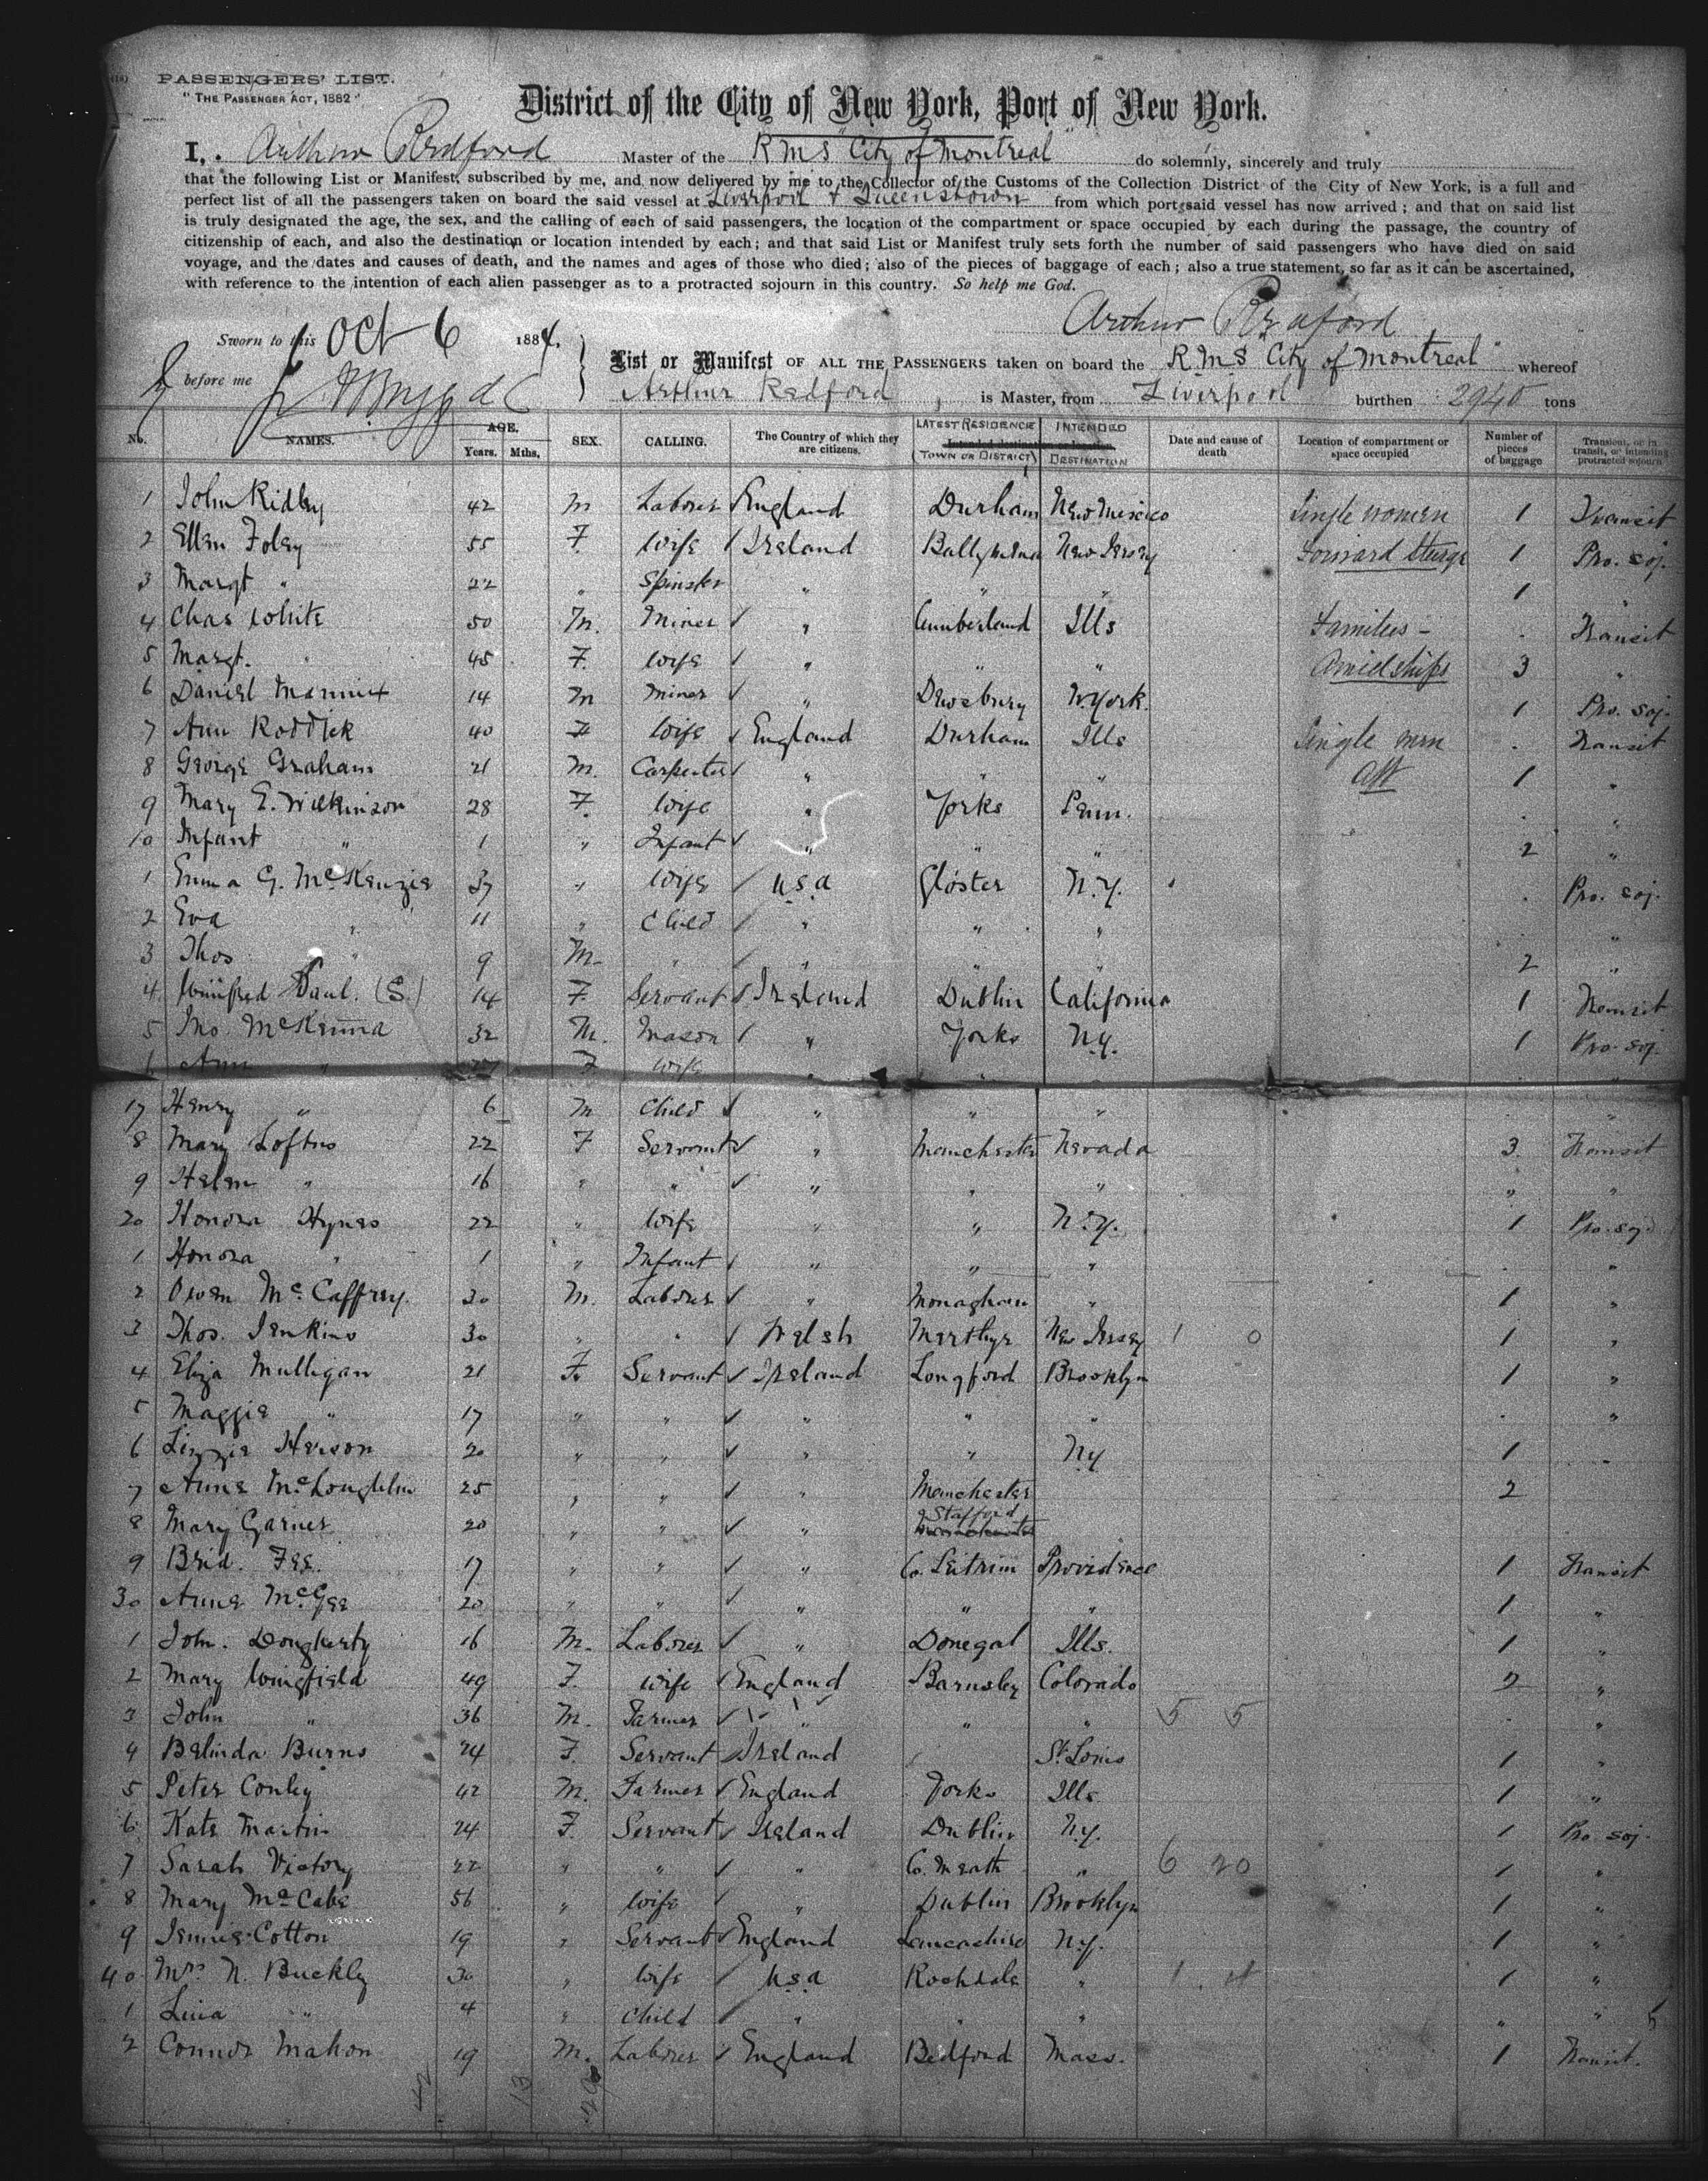 PASSENGERS' LIST.
"THE PASSENGER ACT, 1882"
District of the City of New York, Port of New York.
I, Arthur Redford Master of the RMS "City of Montreal" do solemnly, sincerely and truly
that the following List or Manifest, subscribed by me, and now delivered by me to the Collector of the Customs of the Collection District of the City of New York, is a full and
perfect list of all the passengers taken on board the said vessel at Liverpool & Queenstown from which port said vessel has now arrived; and that on said list
is truly designated the age, the sex, and the calling of each of said passengers, the location of the compartment or space occupied by each during the passage, the country of
citizenship of each, and also the destination or location intended by each; and that said List or Manifest truly sets forth the number of said passengers who have died on said
voyage, and the dates and causes of death, and the names and ages of those who died; also of the pieces of baggage of each; also a true statement, so far as it can be ascertained,
with reference to the intention of each alien passenger as to a protracted sojourn in this country. So help me God.
Arthur Redford
Sworn to this Oct 6 1884,
before me
List or Manifest OF ALL THE PASSENGERS taken on board the RMS "City of Montreal" whereof
Arthur Redford, is Master, from Liverpool burthen 2940 tons
No. NAMES. AGE. Years. Mths. SEX. CALLING. The Country of which they are citizens. Intended destination or location LATEST RESIDENCE (TOWN OR DISTRICT) INTENDED DESTINATION Date and cause of death Location of compartment or space occupied Number of pieces of baggage Transient, or in transit, or intending protracted sojourn
1 John Ridley 42 M Laborer England Durham New Mexico Single women 1 Transit
2 Ellen Foley 55 F. Wife Ireland Ballymena New Jersey Forward Steerge 1 Pro. soj.
3 Margt " 22 " Spinster " " " 1 "
4 Chas White 50 M. Miner " Cumberland Ills Families - . Transit
5 Margt. " 45 F. Wife " " " Amidships 3 "
6 Daniel Mannix 14 M Miner " Dewsbury N.York. 1 Pro. soj.
7 Ann Roddick 40 F Wife England Durham Ills Single men . Transit
8 George Graham 21 M. Carpenter " " " Aft 1 "
9 Mary E. Wilkinson 28 F. Wife " Yorks Penn. . "
10 Infant " 1 " Infant " " " 2 "
1 Emma G. McKenzie 37 " Wife USA Gloster N.Y. . Pro. soj.
2 Eva " 11 " Child " " " . "
3 Thos " 9 M. " " " " 2 "
4 Winifred Paul. (S.) 14 F. Servant Ireland Dublin California 1 Transit
5 Jno. McKenna 32 M. Mason " Yorks N.Y. 1 Pro. soj.
6 Ann " 27 F Wife "
17 Henry " 6 M Child " " " . "
8 Mary Loftus 22 F Servant " Manchester Nevada 3 Transit
9 Helen " 16 " " " " " " "
20 Honora Hynes 22 " Wife " " N.Y. 1 Pro. soj
1 Honora " 1 " Infant " " " . "
2 Owen McCaffrey. 30 M. Laborer " Monaghan " 1 "
3 Thos. Jenkins 30 " " Welsh Merthyr New Jersey 1 0 1 "
4 Eliza Mulligan 21 F. Servant Ireland Longford Brooklyn 1 "
5 Maggie " 17 " " " " " . "
6 Lizzie Herson 20 " " " " N.Y. 1 "
7 Anne McLoughlin 25 " " " Manchester 2
8 Mary Garner 20 " " " Stafford
9 Brid. Fee. 17 " " " Co. Leitrim Providence 1 Transit
30 Anne McGee 20 " " " " " 1 "
1 John. Dougherty 16 M. Laborer " Donegal Ills. 1 "
2 Mary Wingfield 49 F. Wife England Barnsley Colorado 2 "
3 John " 36 M. Farmer " " " 5 5 . "
4 Belinda Burns 24 F. Servant Ireland St. Louis 1 "
5 Peter Conley 42 M. Farmer England Yorks Ills 1 "
6 Kate Martin 24 F. Servant Ireland Dublin N.Y. 1 Pro. soj.
7 Sarah Victory 22 " " " Co. Meath " 6 20 1 "
8 Mary McCabe 56 " Wife " Dublin Brooklyn 1 "
9 Jennie Cotton 19 " Servant England Lancashire N.Y. 1 "
40 Mrs. N. Buckley 30 " Wife USA Rochdale " 1 1 "
1 Lina " 4 " Child " " " " "
2 Connor Mahon 19 M. Laborer England Bedford Mass. 1 Transit.
42 13 29